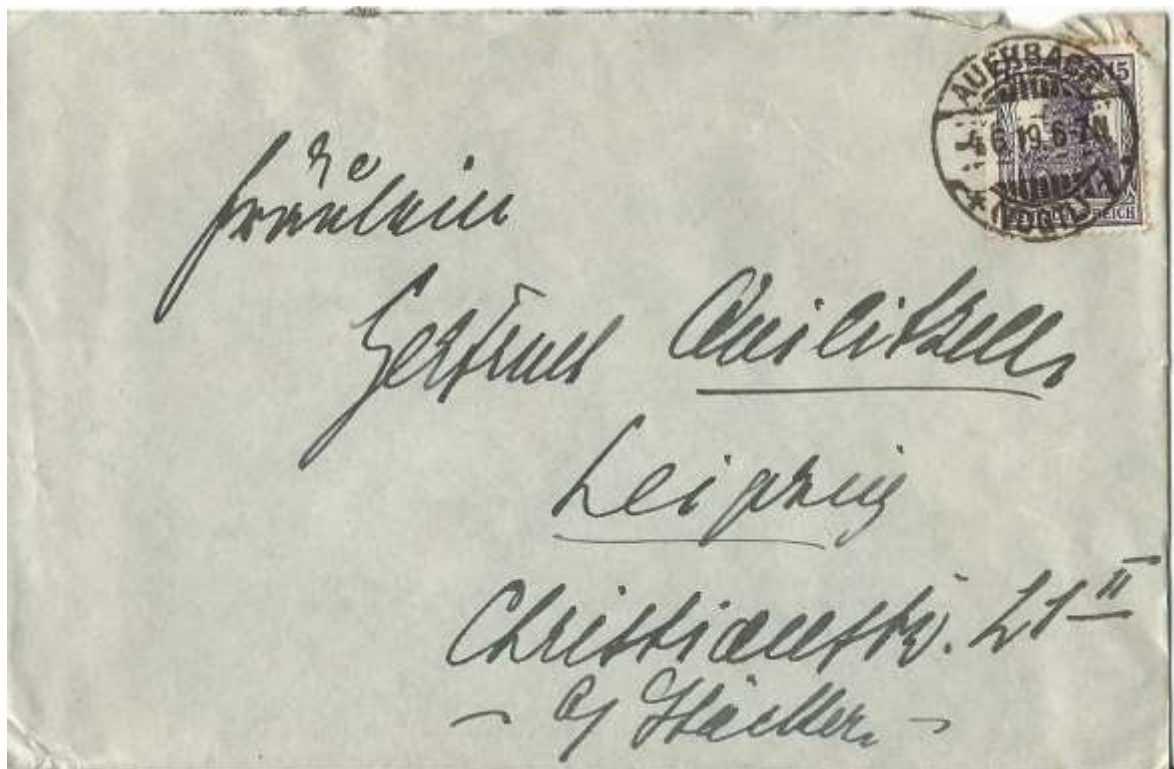 AUERBACH
4.6.19.6-7N.
* (VOGTL)
15
REICH
Fräulein
Gertrud Quilitzsch
Leipzig
Christianstr. 21 II